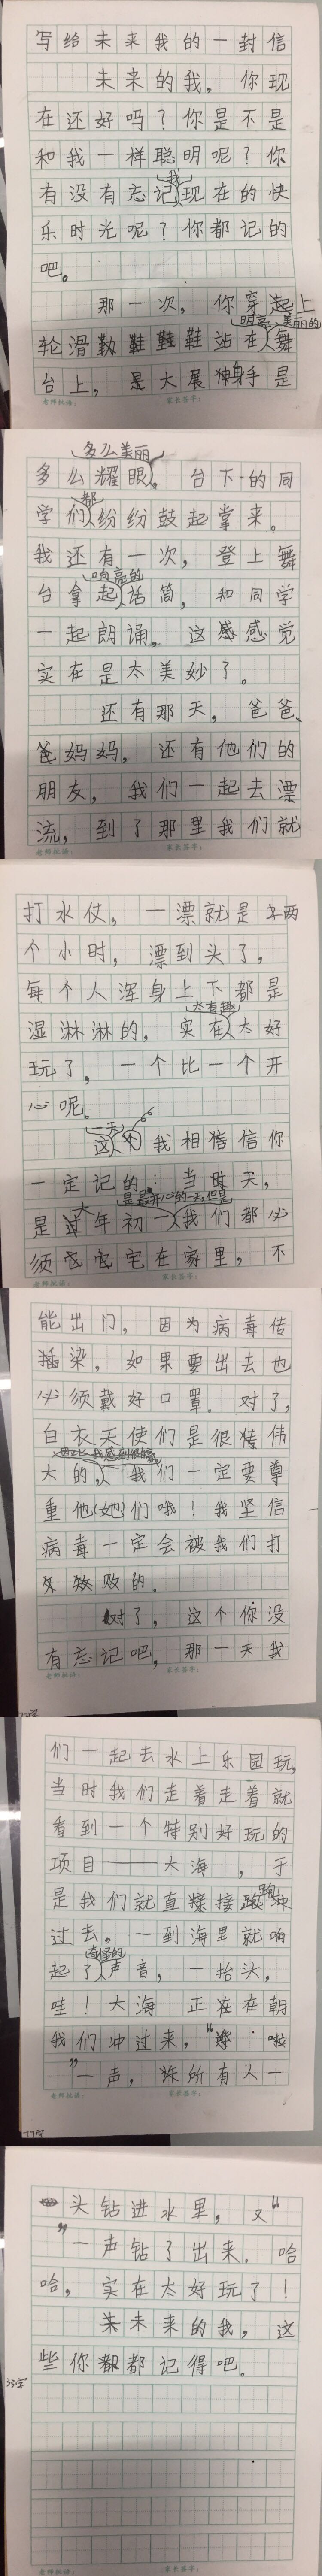 写给未来我的一封信
未来的我，你现
在还好吗？你是不是
和我一样聪明呢？你
有没有忘记我现在的快
乐时光呢？你都记的
吧。
那一次，你穿起上
轮滑鞋站在明亮美丽的舞
台上，大展身手是
老师批语： 家长签字：
多么美丽
多么耀眼。台下的同
学们都纷纷鼓起掌来。
我还有一次，登上舞
台拿起响亮的话筒，和同学
一起朗诵。这感觉
实在是太美妙了。
还有那天，爸爸、
妈妈，还有他们的
朋友，我们一起去漂
流，到了那里我们就
老师批语： 家长签字：
打水仗，一漂就是两
个小时，漂到头了，
每个人浑身上下都是
湿淋淋的，实在太有趣太好
玩了，一个比一个开
心呢。
这一天我相信你
一定记的：当天，
是大年初一是最开心的一天，但是我们都必
须宅在家里，不
老师批语： 家长签字：
能出门，因为病毒传
染，如果要出去也
必须戴好口罩。对了，
白衣天使们是很伟
大的，我们一定要尊
重他(她)们哦！我坚信
病毒一定会被我们打
败的。
对了，这个你没
有忘记吧，那一天我
老师批语： 家长签字：
们一起去水上乐园玩，
当时我们走着走着就
看到一个特别好玩的
项目——大海，于
是我们就直接跑冲
过去。一到海里就响
起了奇怪的声音，一抬头，
哇！大海正在朝
我们冲过来，“啦
”一声，所有人一
老师批语： 家长签字：
77字
头钻进水里，又“
”一声钻了出来。哈
哈，实在太好玩了！
未来的我，这
些你都记得吧。
老师批语： 家长签字：